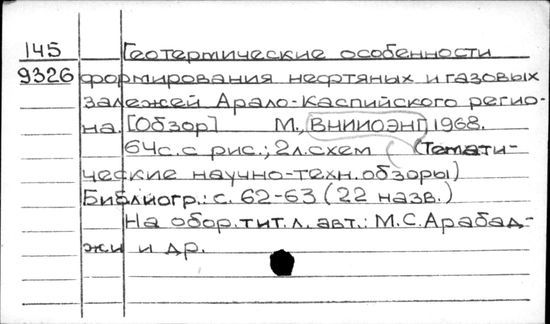 145 Геотермические особенности
9326 формирования нефтяных и газовых
залежей Арало-Каспийского регио-
на. [Обзор] М., ВНИИОЭНГ, 1968.
64с. с рис.; 2л. схем (Темати-
ческие научно-техн. обзоры)
Библиогр.: с. 62-63 (22 назв.)
На обор. тит. л. авт.: М.С. Арабад-
жи и др.